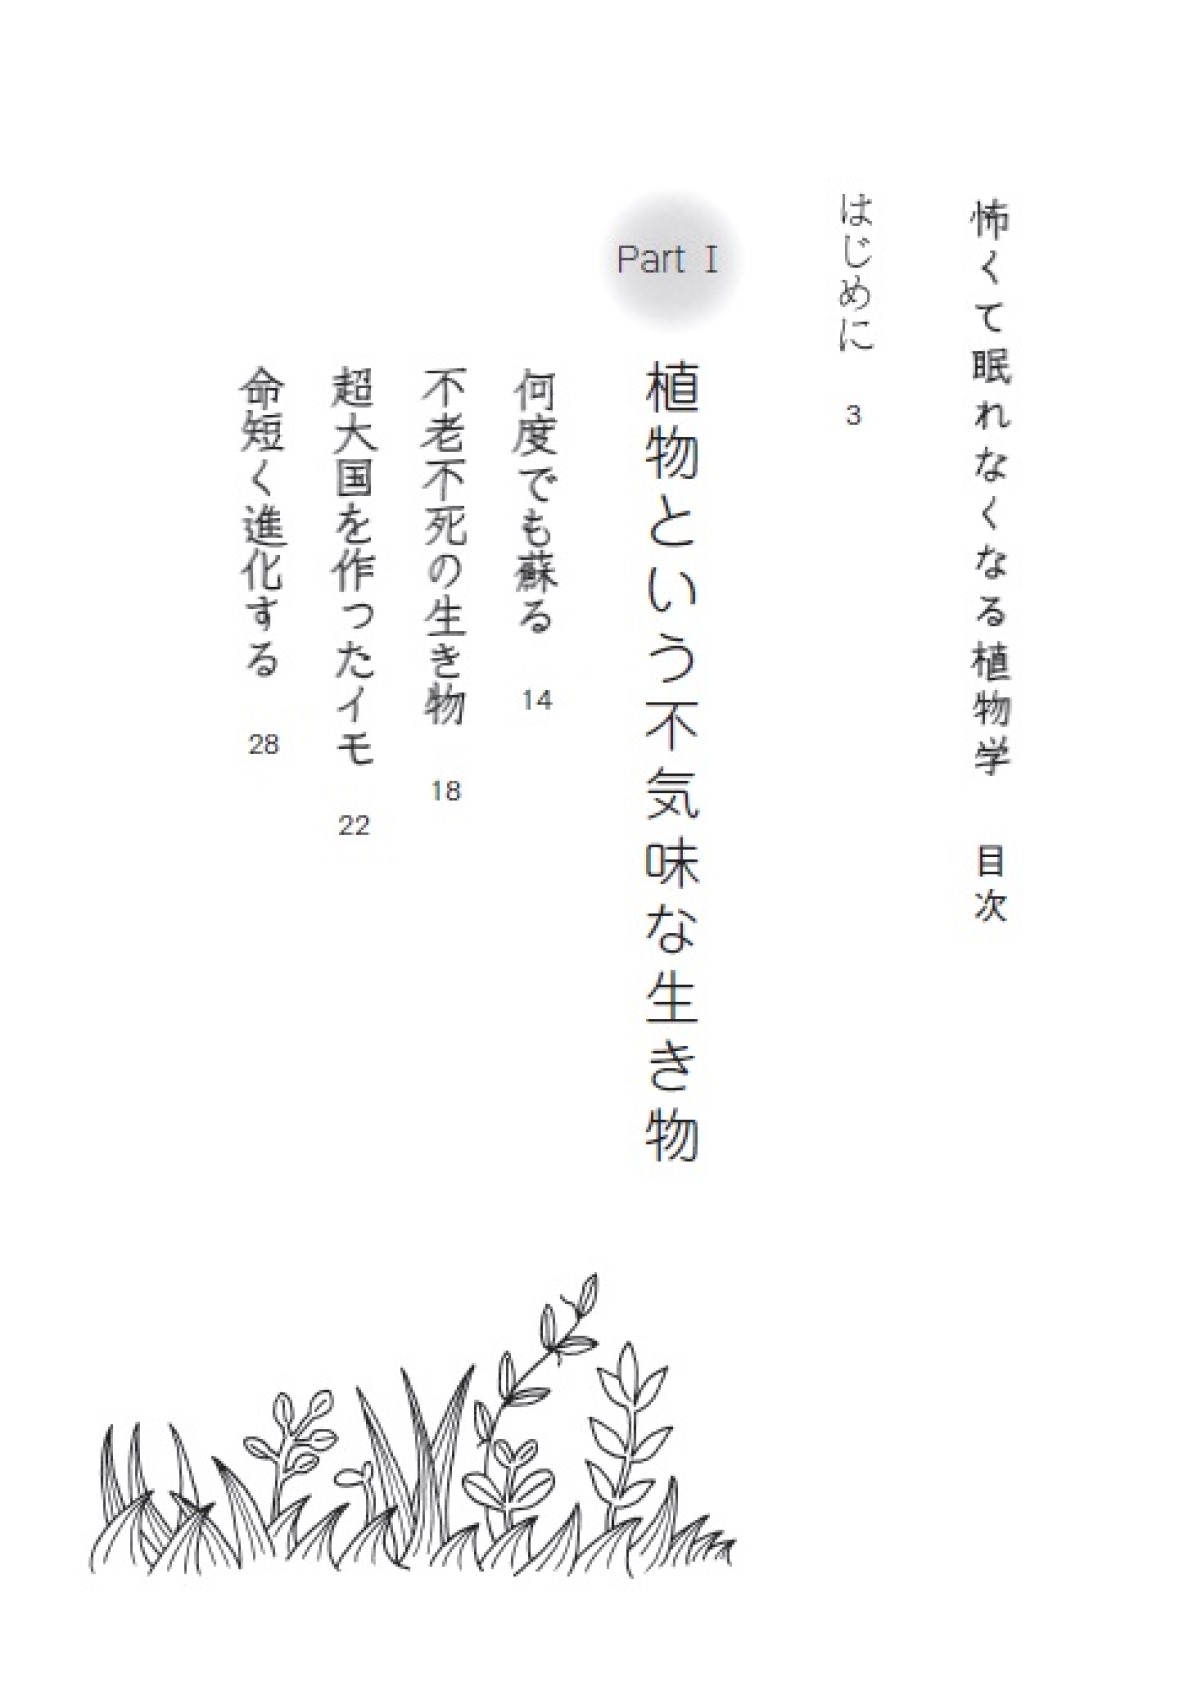 怖くて眠れなくなる植物学　目次
はじめに　3
Part Ⅰ
植物という不気味な生き物
何度でも蘇る　14
不老不死の生き物　18
超大国を作ったイモ　22
命短く進化する　28